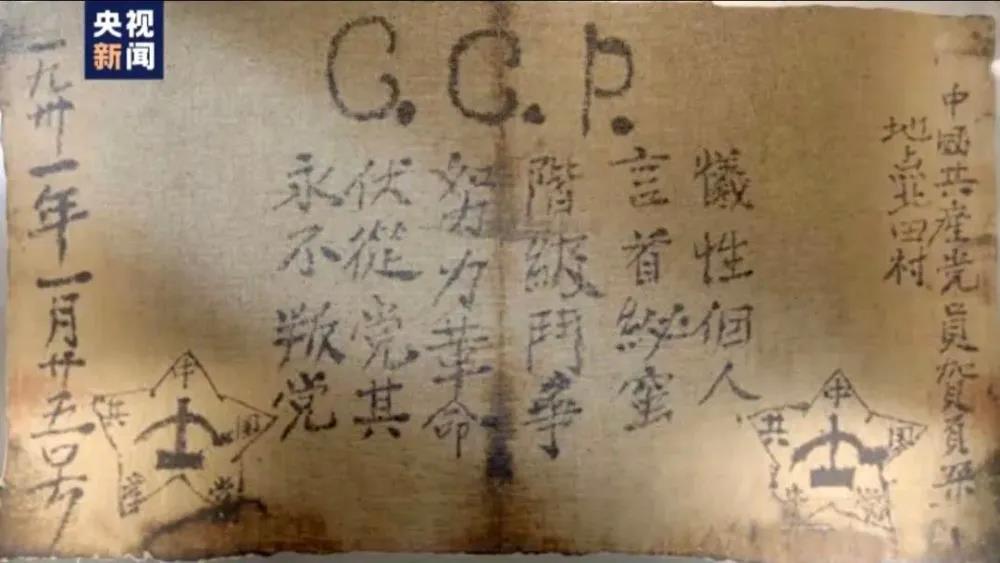 C.C.P.
中國共産党員賀頁朶
地点北田村
犧性個人
言首秘蜜
階級鬥爭
努力革命
伏從党其
永不叛党
一九卅一年一月廿五日
中国共产党
中国共产党
央视
新闻